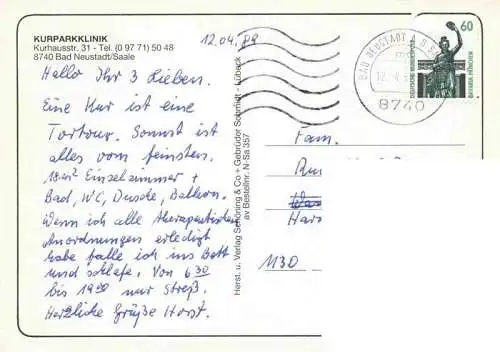 KURPARKKLINIK
Kurhausstr. 31 - Tel. (0 97 71) 50 48
8740 Bad Neustadt/Saale
12.04.89
Hallo Ihr 3 Lieben.
Eine Kur ist eine
Tortour. Sonnst ist
alles vom feinsten.
18m² Einzelzimmer +
Bad, WC, Dusche, Balkon.
Wenn ich alle therapeutischen
Anordnungen erledigt
habe falle ich ins Bett
und schlafe. Von 6³⁰
bis 19⁰⁰ nur Streß.
Herzliche Grüße Horst.
Herst. u. Verlag Schöning & Co + Gebrüder Schmidt - Lübeck
av Bestellnr. N-Sa 357
BAD NEUSTADT A D S
8740
60
DEUTSCHE BUNDESPOST
BAVARIA MÜNCHEN
Fam.
1130